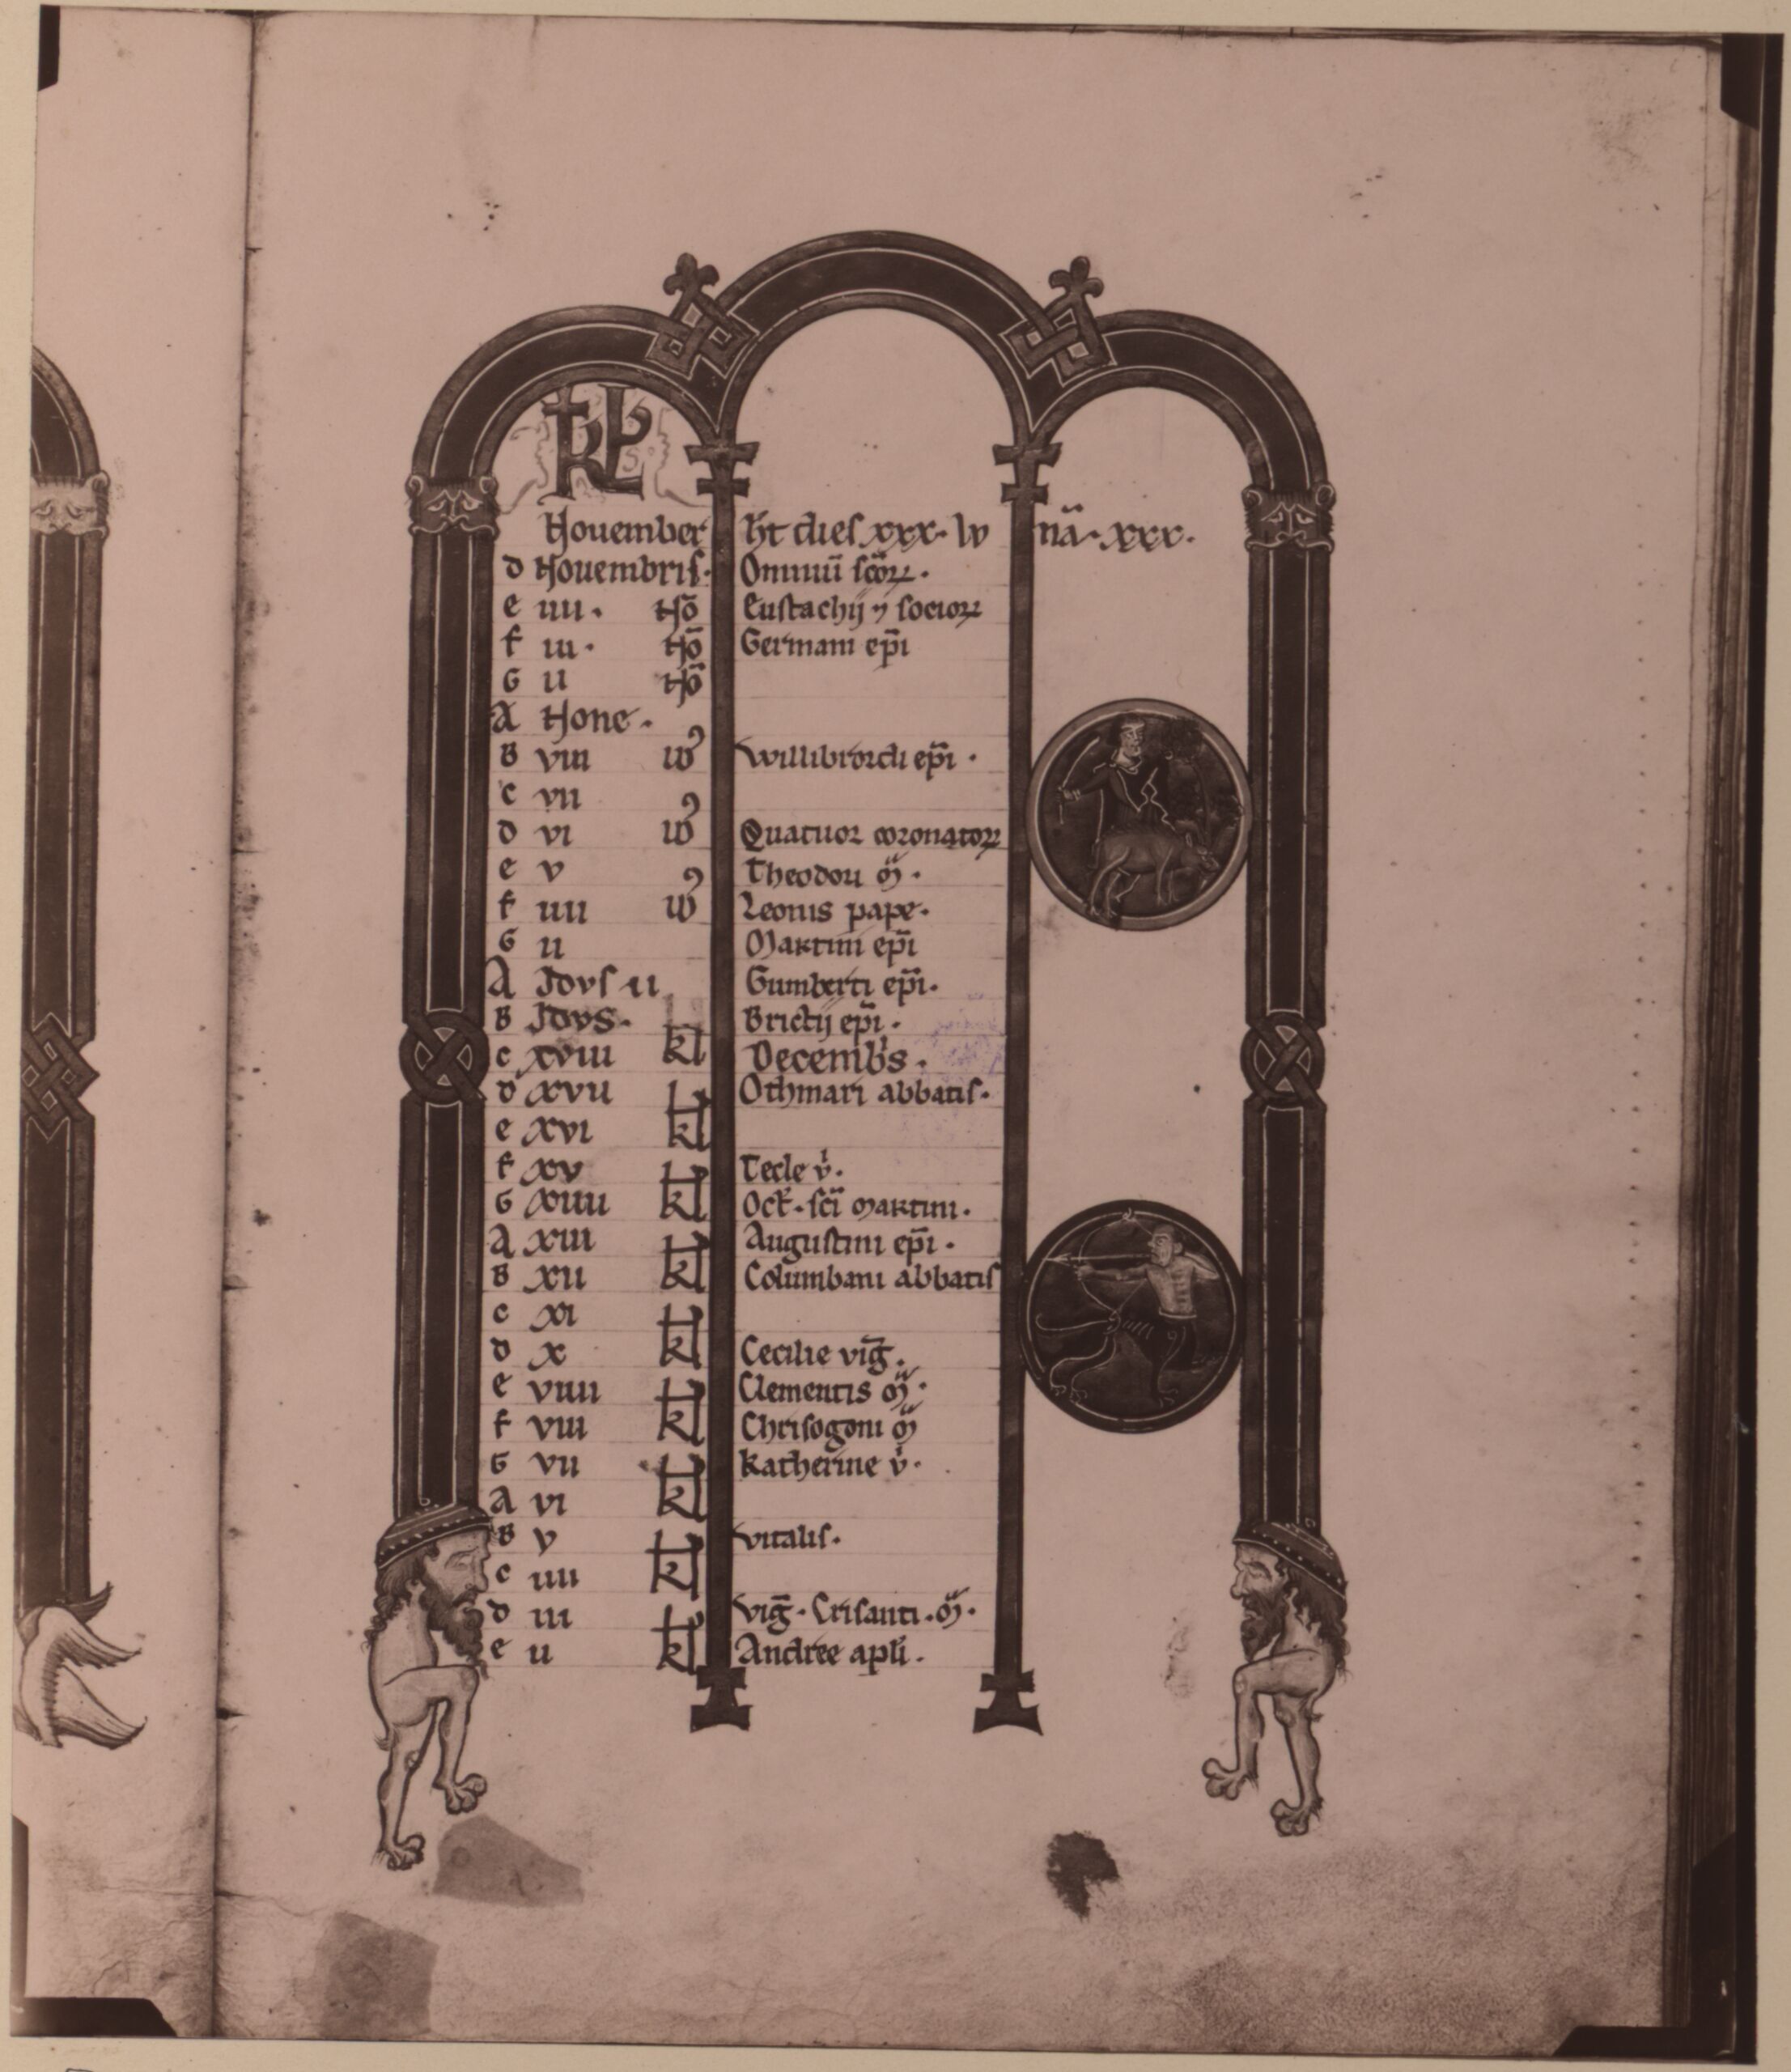 KL
Nouember ht dies xxx. lv na. xxx.
d Nouembris. Omniū scōꝝ.
e iiii. Nō Eustachij ⁊ socioꝝ
f iii. Nō Germani epī
G ii Nō
A None.
B viii Willibrordi epī.
c vii
d vi Quatuor coronatoꝝ
e v Theodori m̄.
f iiii Leonis pape.
G ii Martini epī
A Idvs ii Gumberti epī.
B Idvs. Brictij epī.
c xviii kl Decembs.
d xvii kl Othmari abbatis.
e xvi kl
f xv kl Tecle v̇.
G xiiii kl Oct̄. scī Martini.
A xiii kl Augustini epī.
B xii kl Columbani abbatis
c xi kl
d x kl Cecilie virḡ.
e viiii kl Clementis m̄.
f viii kl Chrisogoni m̄
G vii kl Katherine v̇.
A vi kl
B v kl Vitalis.
c iiii kl
d iii kl Vig̅. Crisanti. m̄.
e ii kl Andree aplī.